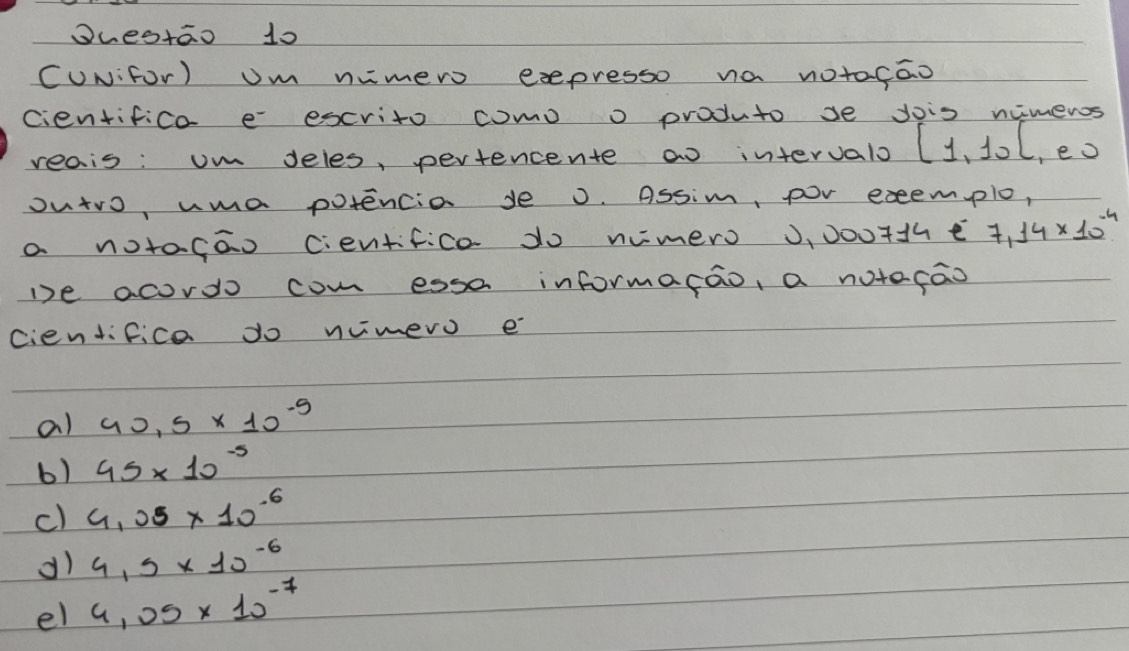 Questão 10
(UNifor) Um número expresso na notação
cientifica é escrito como o produto de dois números
reais: um deles, pertencente ao intervalo [1,10[, e o
outro, uma potência de 0. Assim, por exemplo,
a notação cientifica do número 0,000714 é 7,14 × 10⁻⁴
De acordo com essa informação, a notação
cientifica do número é
a) 40,5 × 10⁻⁵
b) 45 × 10⁻⁵
c) 4,05 × 10⁻⁶
d) 4,5 × 10⁻⁶
e) 4,05 × 10⁻⁷